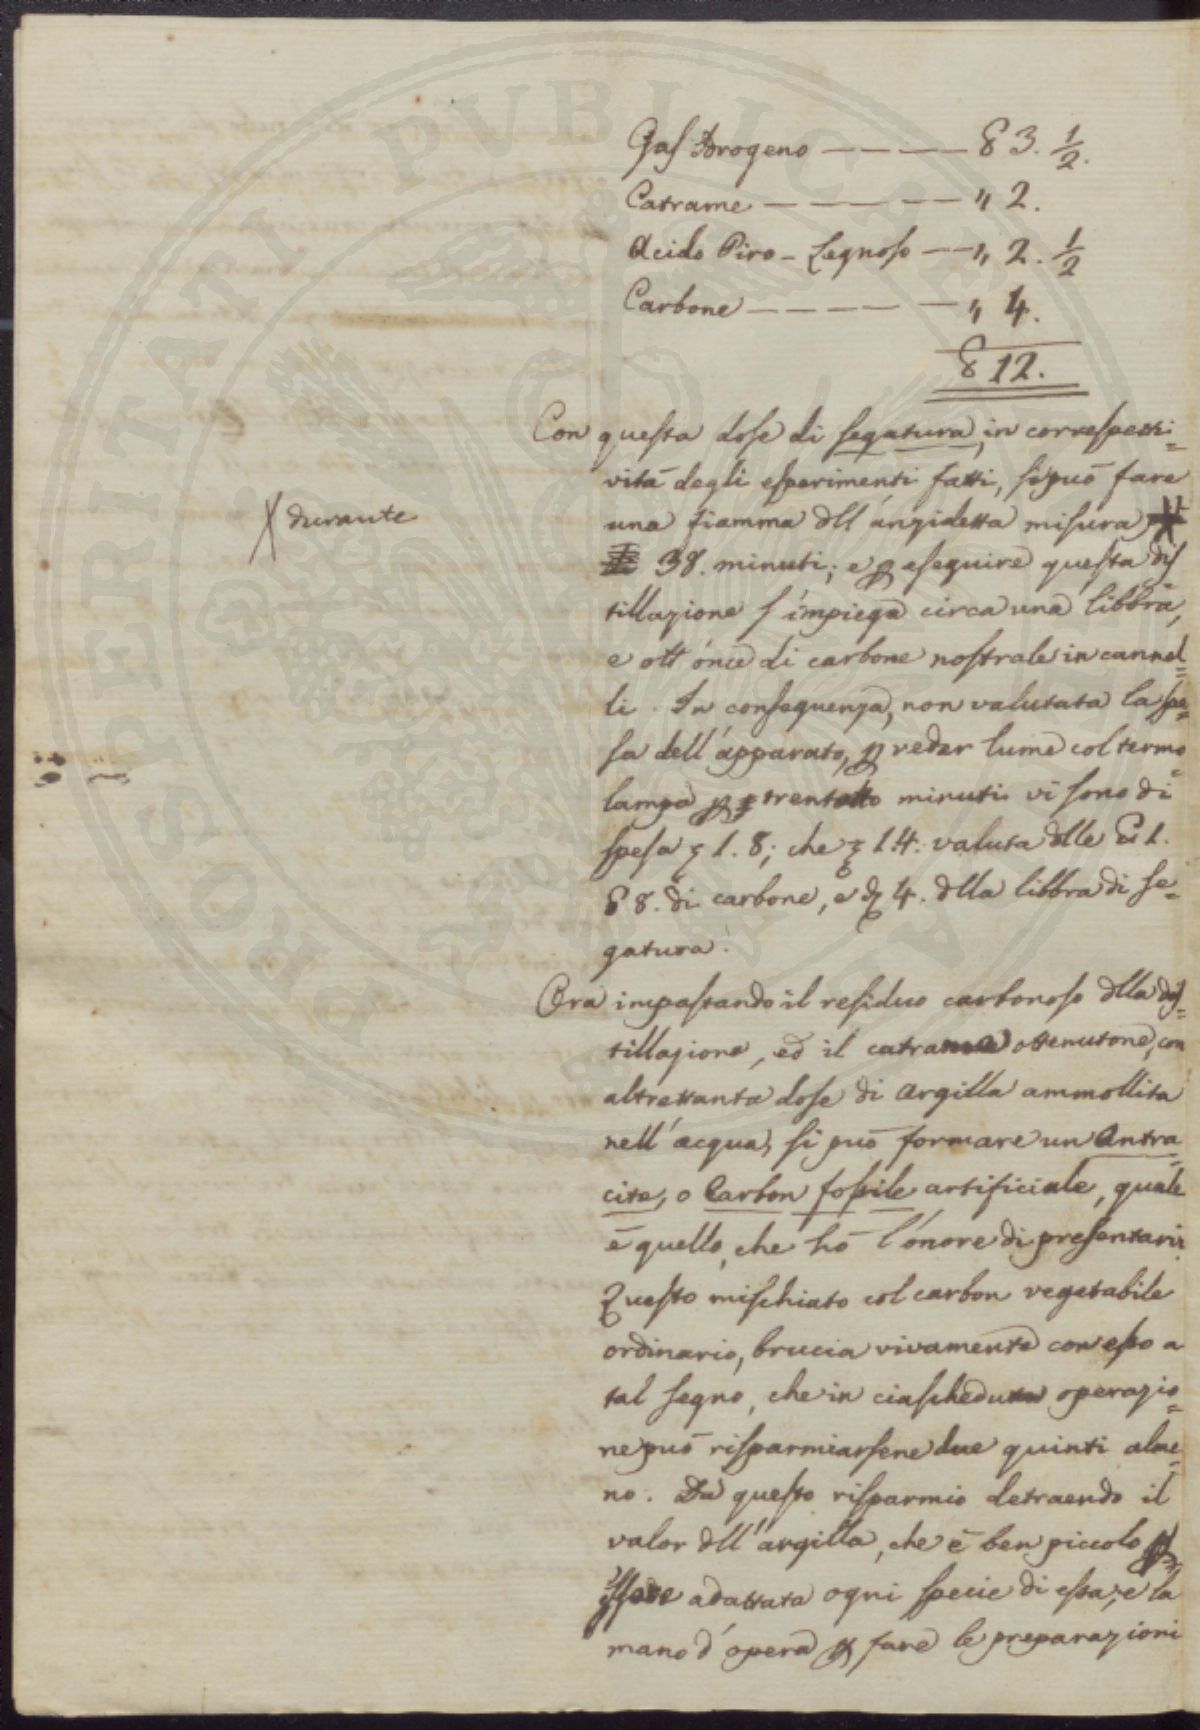 Gas Idrogeno — — — — ℥ 3. 1/2.
Catrame — — — — — „ 2.
Acido Piro-Legnoso — — „ 2. 1/2
Carbone — — — — — „ 4.
℥ 12.
Con questa dose di segatura, in correspetti=
vità degli esperimenti fatti, si può fare
una fiamma dll'anzidetta misura
X durante
38. minuti; e p eseguire questa dis
tillazione s'impiega circa una libbra,
e ott'once di carbone nostrale in cannel=
li. In conseguenza, non valutata la spe=
sa dell'apparato, p veder lume col termo=
lampa p trentotto minuti vi sono di
spesa 1. 8; che 1.4. valuta dlle 1.
℥ 8. di carbone, e 4. dlla libbra di se=
gatura.
Ora impastando il residuo carbonoso dlla dis=
tillazione, ed il catrame ottenutone, con
altrettanta dose di argilla ammollita
nell'acqua, si può formare un Antra=
cite, o Carbon fossile artificiale, quale
è quello, che hò l'onore di presentarvi.
Questo mischiato col carbon vegetabile
ordinario, brucia vivamente con esso a
tal segno, che in ciascheduna operazio=
ne può risparmiarsene due quinti alme=
no. Da questo risparmio detraendo il
valor dll'argilla, che è ben piccolo p
essere adattata ogni specie di essa, e la
mano d'opera p fare le preparazioni